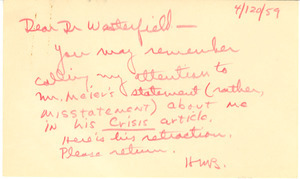 4/20/59
Dear Dr Wasterfield—
You may remember
calling my attention to
Mr. Meier's statement (rather,
misstatement) about me
in his Crisis article.
Here's his retraction.
Please return.
HMB.